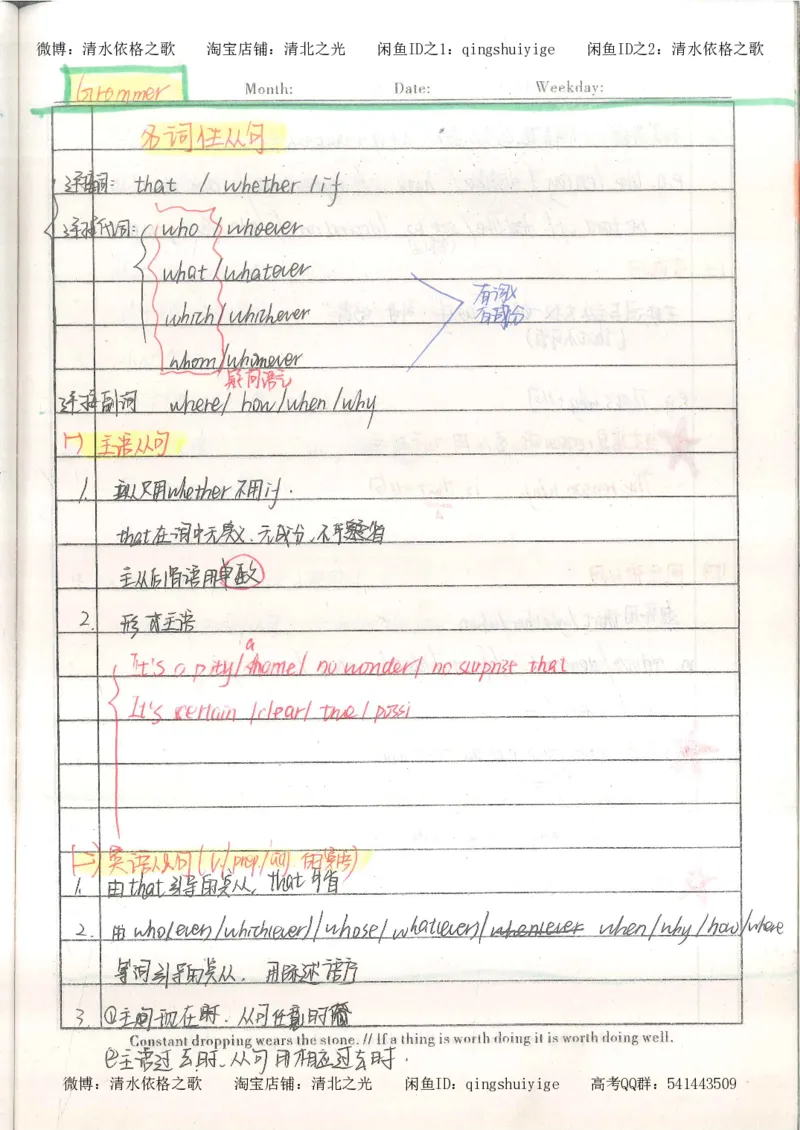 微博：清水依格之歌 淘宝店铺：清北之光 闲鱼ID之1：qingshuiyige 闲鱼ID之2：清水依格之歌
Grammer Month: Date: Weekday:
名词性从句
连接词: that / whether / if
连接代词: who / whoever
what / whatever
有词义
有成分
which / whichever
whom / whomever
疑问语气
连接副词 where / how / when / why
(一) 主语从句
1. 主从只用whether不用if.
that在词中无实义、无成分、不可省
主从后谓语用单数
2. 形式主语
It's a pity / a shame / no wonder / no surprise that
It's certain / clear / true / possi
(二) 宾语从句 (v. / prep. / adj. 的宾语)
1. 由that引导的宾从, that可省
2. 由who(ever) / which(ever) / whose / what(ever) / whenever when / why / how / where
等词引导的宾从. 用陈述语序
3. ①主句现在时. 从句任意时态
Constant dropping wears the stone. // If a thing is worth doing it is worth doing well.
②主语过去时、从句用相应过去时.
微博：清水依格之歌 淘宝店铺：清北之光 闲鱼ID：qingshuiyige 高考QQ群：541443509